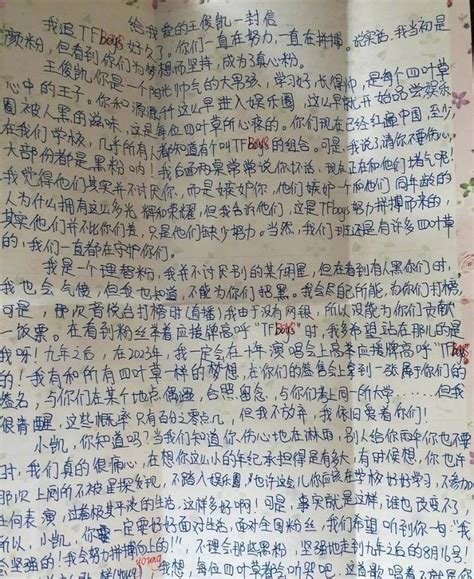 给我爱的王俊凯一封信
我追TFBoys好久了,你们一直在努力,一直在拼搏。说实话,我当初是
颜粉,但看到你们为梦想而坚持,成为了真心粉。
王俊凯,你是一个阳光帅气的大男孩,学习好,长得帅,是每个四叶草
心中的王子。你和源源、千这么早进入娱乐圈,这么早就开始品尝娱乐
圈被人黑的滋味,这是每位四叶草所心疼的。你们现在已经红遍中国,至少
在我们学校,几乎所有人都知道有个叫TFBoys的组合。可是,我说了请你不要伤心,
大部份都是黑粉呐!我台面两桌常常说你坏话,现在正在和他们堵气呢!
我觉得他们其实并不讨厌你,而是嫉妒你,他们嫉妒一个和他们同年龄的
人为什么拥有这么多光辉和荣耀,但我告诉他们,这是TFboys努力拼搏而来的,
其实他们并不比你们差,只是他们缺少努力。当然,我们班还是有许多四叶草
的,我们一直都在守护你们。
我是一个理智粉,我并不讨厌别的某明星,但在看到有人黑你们时,
我也会气愤,但我也知道,不能为你们招黑。我会尽自己所能,为你们打榜,
可是,那次音悦台打榜时(直播)我由于没有网银,所以没能为你们贡献
一饭票。在看别粉丝举着应援牌高呼“TFBoys”时,我多希望站在那儿的是
我呀!九年之后,在2023年,我一定会在十年演唱会上高举应援牌高呼“TFBoys
的!我有和所有四叶草一样的梦想,在你们的签售会上拿到一张属于你们的
签名,与你们在某个地点偶遇,合照留念,与你们考上同一所大学……但我
很清醒,这些概率只有百分之零点几,但我不放弃,我依旧爱着你们!
小凯,你知道吗?当我们知道你伤心地在淋雨,别人给你雨伞你也不理
时,我们真的很痛心,在想你这么小的年纪承担得是有多大,有时候想,你也许
那次上网的不被星探发现,不踏入娱乐圈,也许这些儿你应该在学校好好学习,不参加
任何表演,过着极其平凡的生活,这样多好啊!可是,事实就是这样,谁也改变不了,
所以,小凯,你要一定要好好面对生活,面对全国粉丝,我们希望听到你一句:“我
会坚强的!我会努力拼搏向上的!”,不理会那些黑粉,坚强地走到九年之后的8月16号,
梦想,每位四叶草都会听哭吧,这首歌唱着